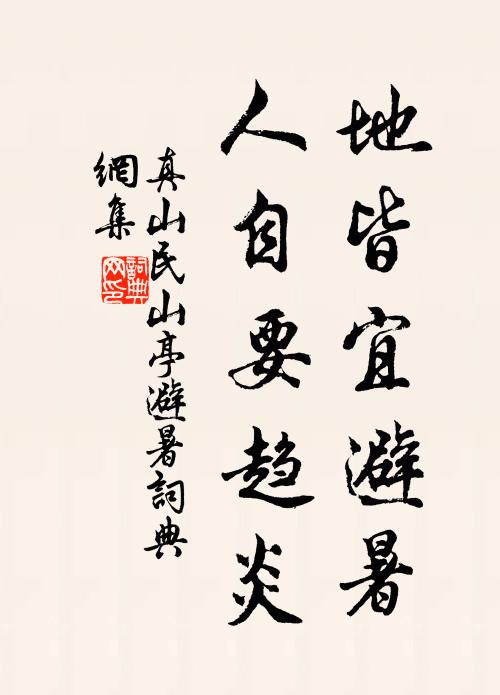 地皆宜避暑
人自要趨炎
真山民山亭避暑詞典
網集
詞典
网印